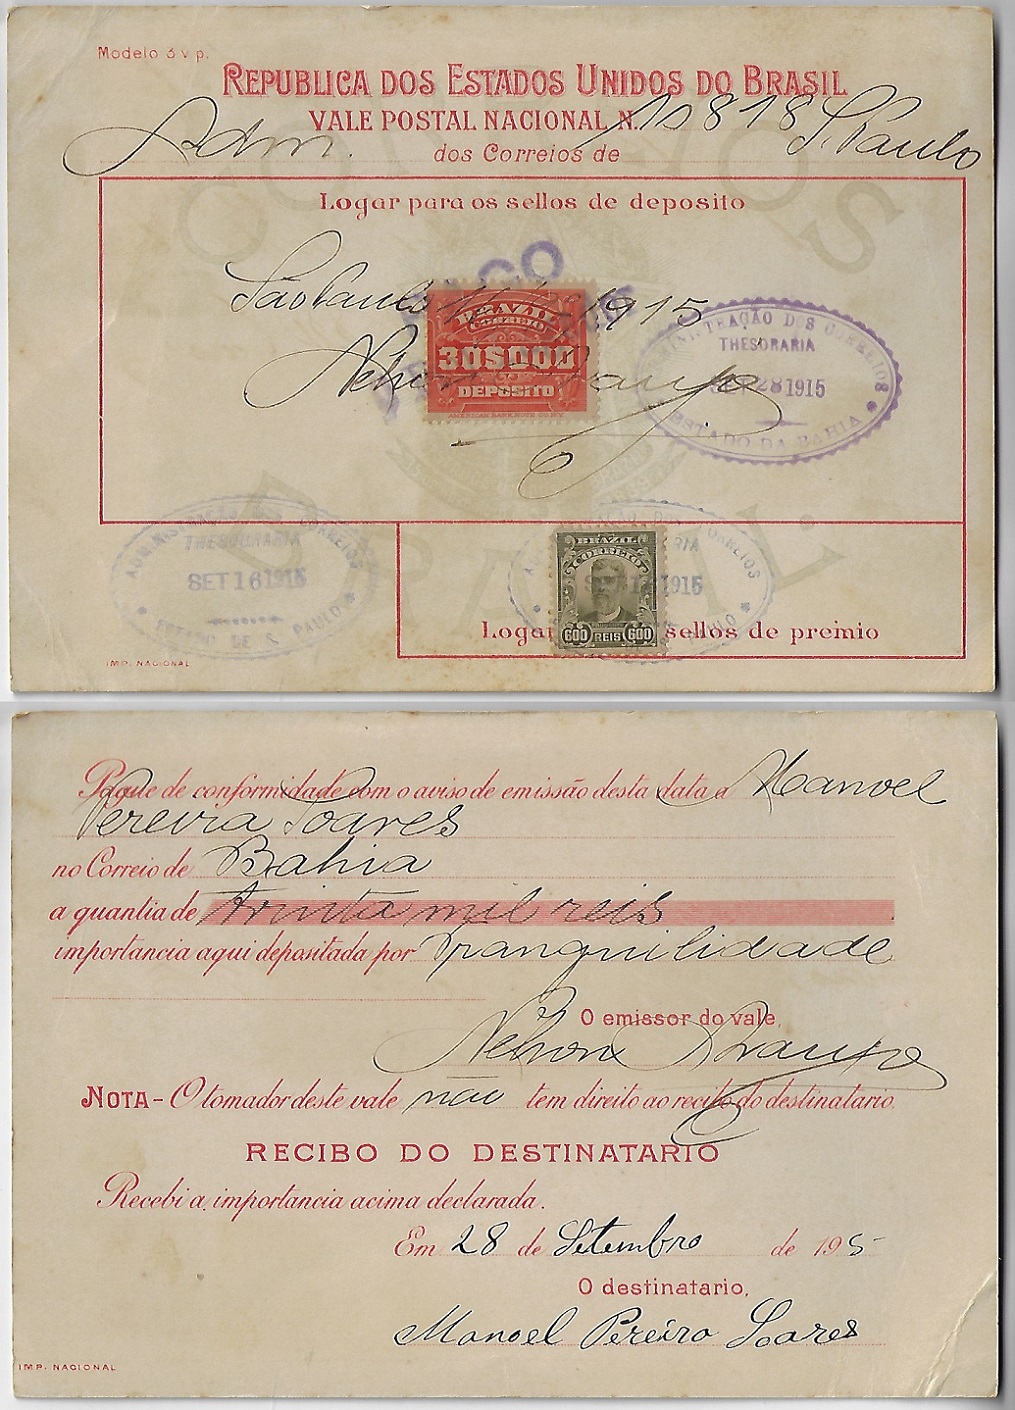 Modelo 3 v p.
REPUBLICA DOS ESTADOS UNIDOS DO BRASIL
VALE POSTAL NACIONAL N. 10818
Adm. dos Correios de S. Paulo
CORREIOS
BRASIL
Logar para os sellos de deposito
PAGO
São Paulo 1915
BRAZIL
CORREIO
30$000
DEPOSITO
AMERICAN BANK NOTE CO. N.Y.
Nelson Araujo
ADMINISTRAÇÃO DOS CORREIOS
THESORARIA
SET 28 1915
ESTADO DA BAHIA
ADMINISTRAÇÃO DOS CORREIOS
THESOURARIA
SET 16 1915
ESTADO DE S. PAULO
BRAZIL
CORREIO
600 REIS 600
Logar sellos de premio
IMP. NACIONAL
Pague de conformidade com o aviso de emissão desta data a Manoel
Pereira Soares
no Correio de Bahia
a quantia de Trinta mil reis
importancia aqui depositada por Tranquilidade
O emissor do vale,
Nelson Araujo
NOTA - O tomador deste vale não tem direito ao recibo do destinatario.
RECIBO DO DESTINATARIO
Recebi a importancia acima declarada.
Em 28 de Setembro de 195
O destinatario,
Manoel Pereira Soares
IMP. NACIONAL